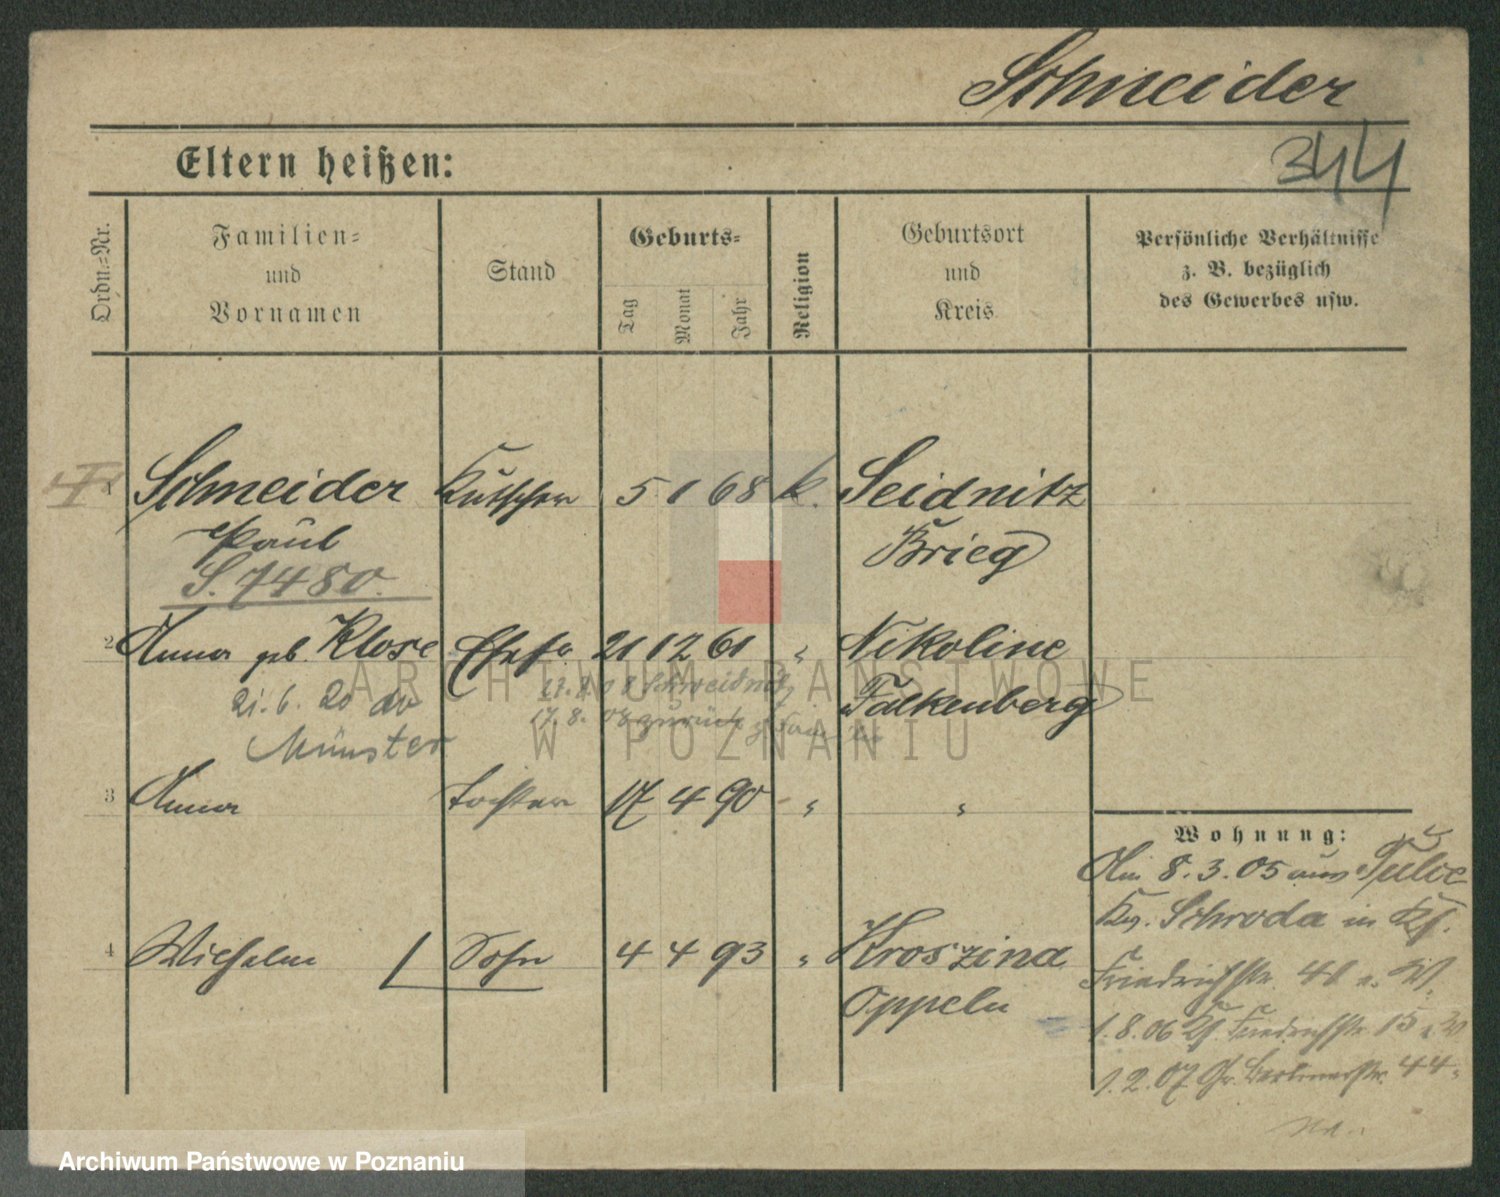 Schneider
344
Eltern heißen:
Ordn.-Nr.
Familien- und Vornamen
Stand
Geburts-
Tag
Monat
Jahr
Religion
Geburtsort und Kreis
Persönliche Verhältnisse
z. B. bezüglich
des Gewerbes usw.
1 Schneider Kutscher 5 1 68 k. Seidnitz
Paul Brieg
S. 7480.
2 Anna geb. Klose Ehefr. 21 12 61 " Nikoline
21.6.20 Falkenberg
Münster
17.8.08 zurück
3 Anna Tochter 17 4 90 " "
Wohnung:
Am 8.3.05 aus Pulve
Krs. Schroda in
4 Wilhelm Sohn 4 4 93 " Kroszina
Oppeln
Friedrichstr.
1.8.06 Friedrichstr. 15
1.2.07 Gr. Berlinerstr. 44
ARCHIWUM PAŃSTWOWE
W POZNANIU
Archiwum Państwowe w Poznaniu